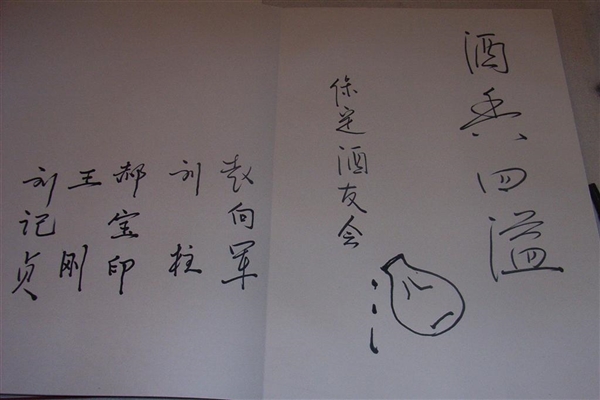 酒香四溢
保定酒友会
袁向军
刘柱
郝宝印
王刚
刘记贞